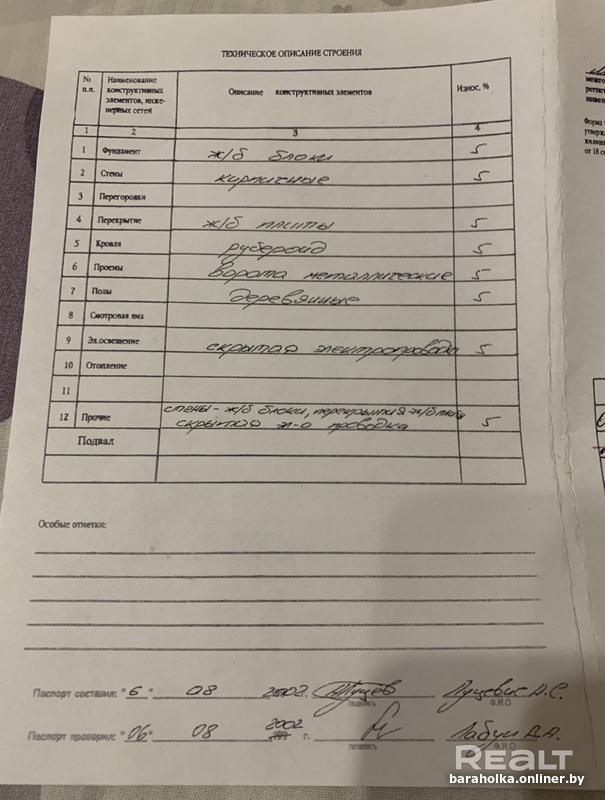 ТЕХНИЧЕСКОЕ ОПИСАНИЕ СТРОЕНИЯ
№ п.п. Наименование конструктивных элементов, инже-нерных сетей Описание конструктивных элементов Износ, %
1 2 3 4
1 Фундамент ж/б блоки 5
2 Стены кирпичные 5
3 Перегородки
4 Перекрытие ж/б плиты 5
5 Кровля рубероид 5
6 Проемы ворота металлические 5
7 Полы деревянные 5
8 Смотровая яма
9 Эл.освещение скрытая электропроводка 5
10 Отопление
11
12 Прочие стены - ж/б блоки, перекрытия ж/б
скрытая эл-о проводка 5
Подвал
Особые отметки:
Паспорт составил: "6" 08 2002 г. Луцевич А.С.
подпись Ф.И.О
Паспорт проверил: "06" 08 2002 г. Лабун Д.А.
подпись Ф.И.О
REALT
baraholka.onliner.by